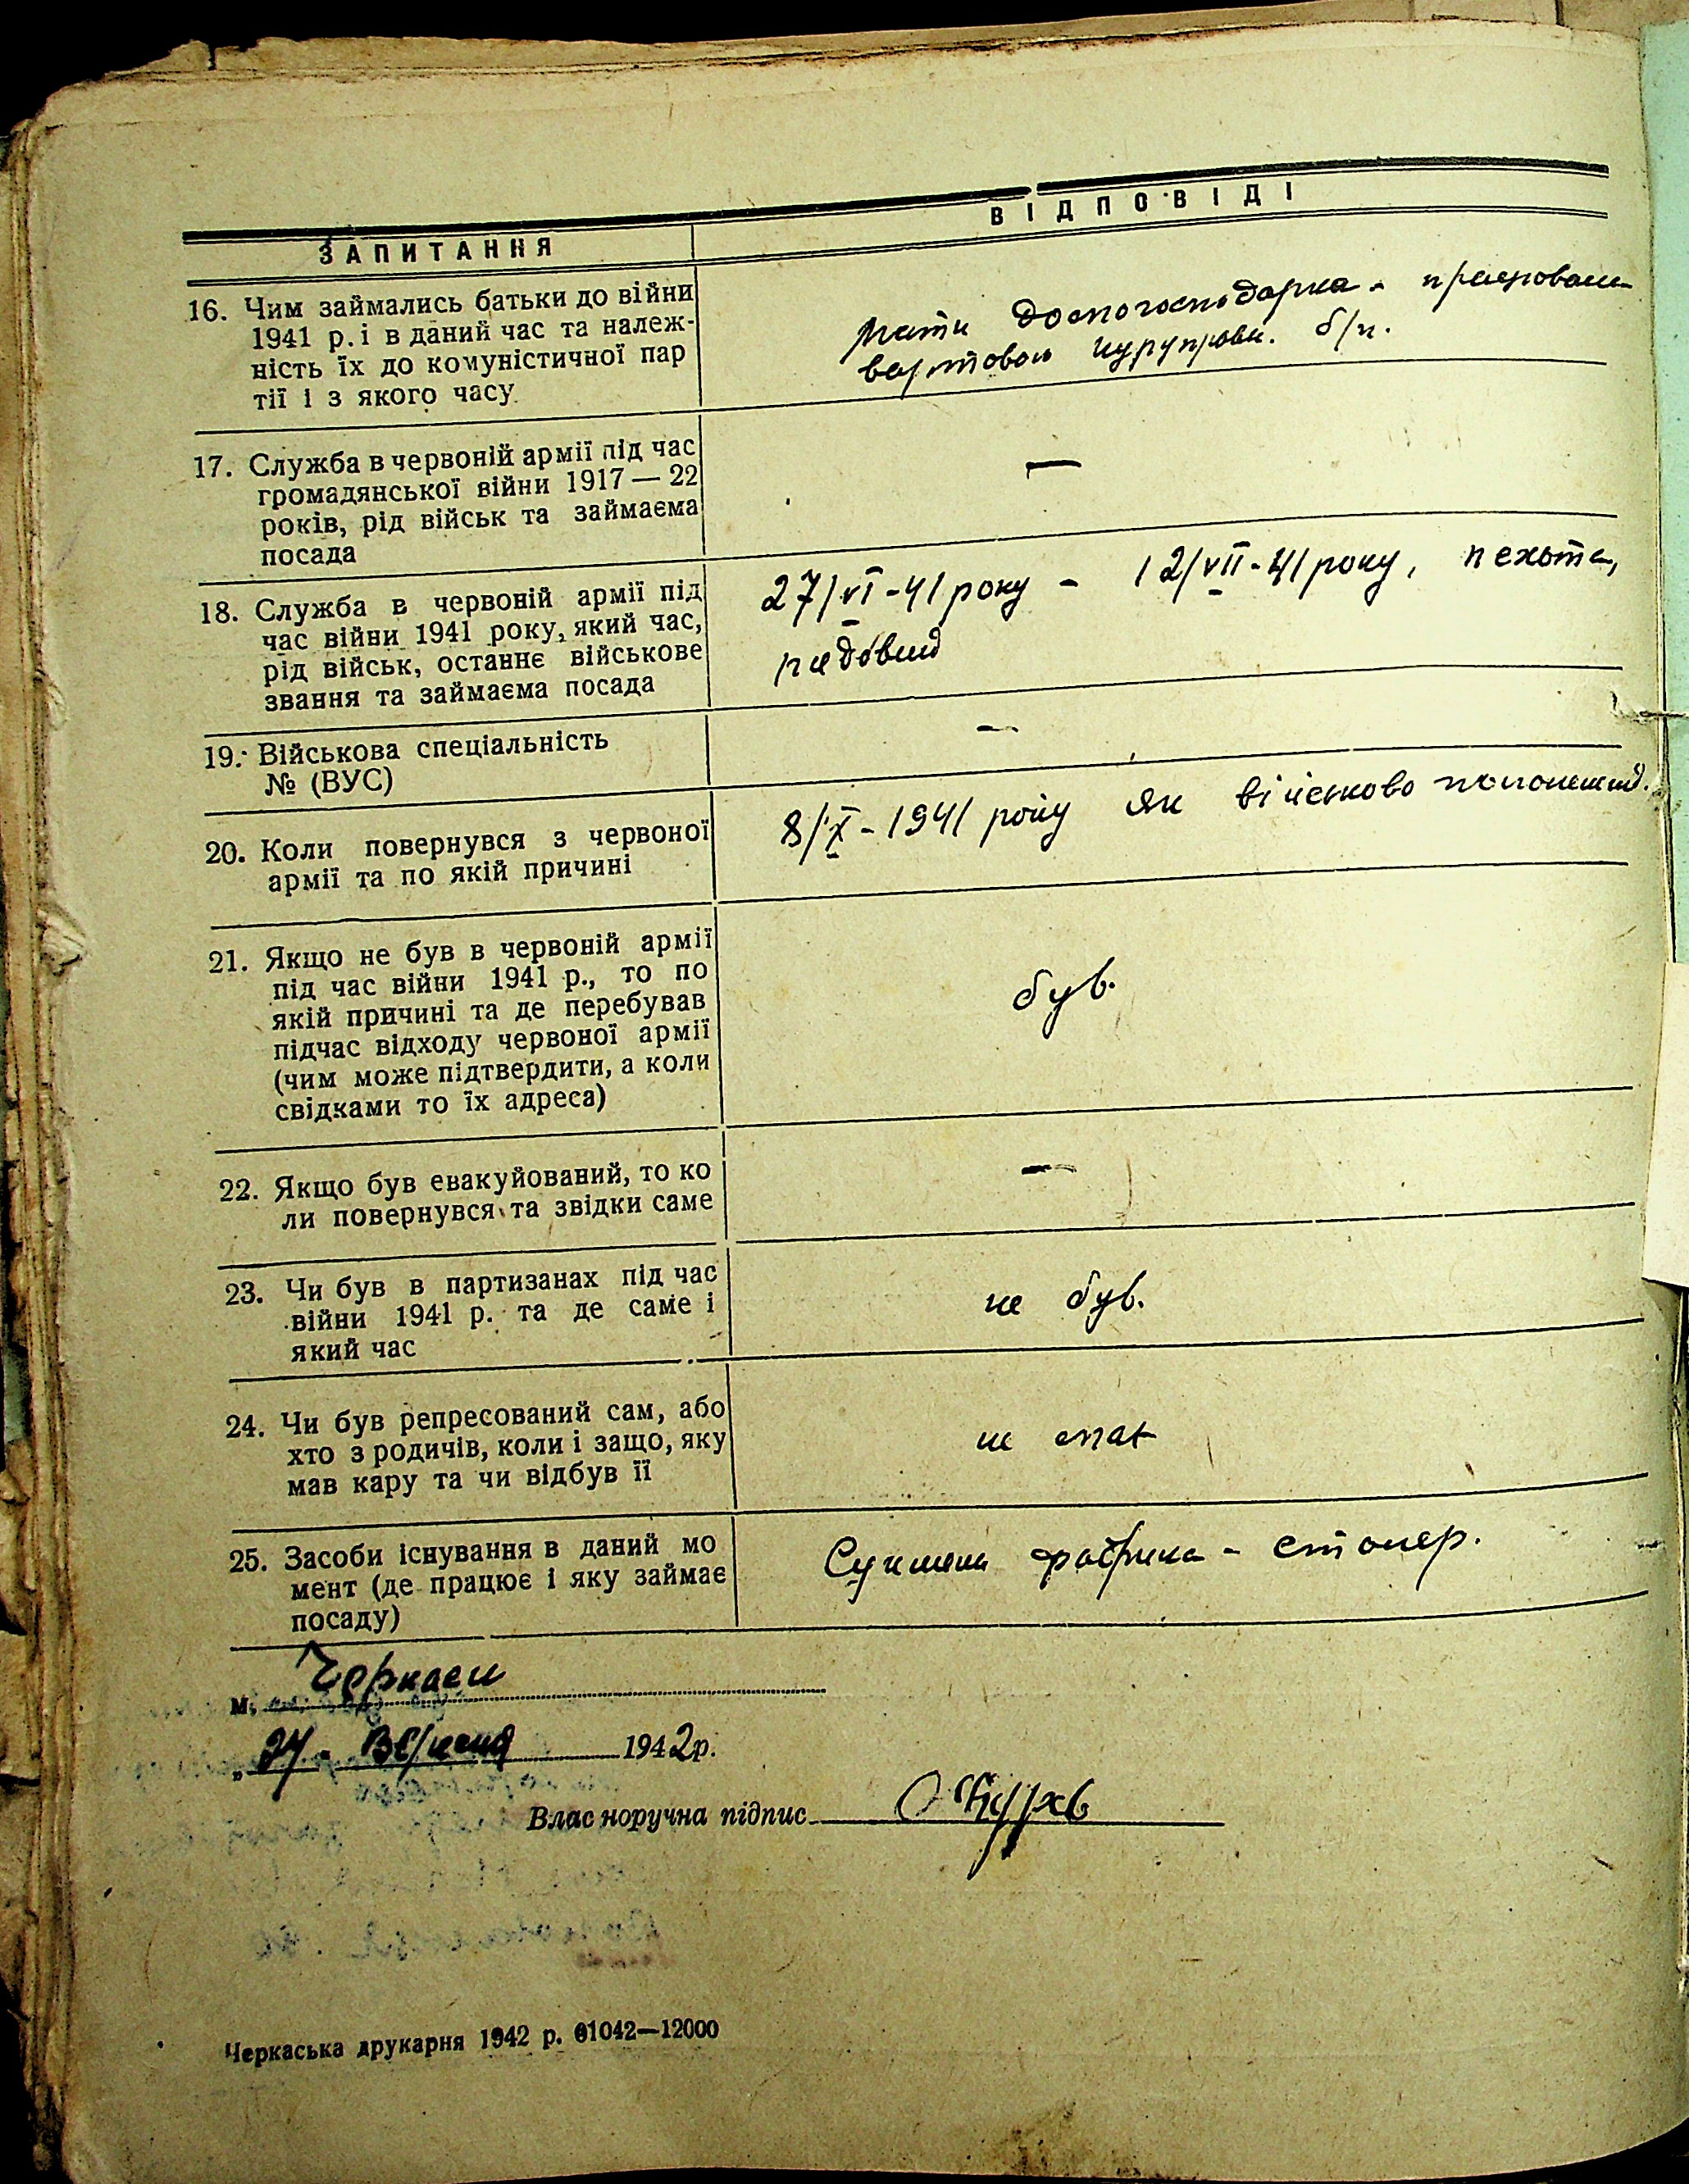 ЗАПИТАННЯ
ВІДПОВІДІ
16. Чим займались батьки до війни
1941 р. і в даний час та належ-
ність їх до комуністичної пар
тії і з якого часу
Мати домогосподарка -
вартовою б/п.
17. Служба в червоній армії під час
громадянської війни 1917 — 22
років, рід військ та займаєма
посада
—
18. Служба в червоній армії під
час війни 1941 року, який час,
рід військ, останнє військове
звання та займаєма посада
27/VI-41 року - 12/VII-41 року, пехота,
рядовий
19. Військова спеціальність
№ (ВУС)
—
20. Коли повернувся з червоної
армії та по якій причині
8/X-1941 року як військово полонений.
21. Якщо не був в червоній армії
під час війни 1941 р., то по
якій причині та де перебував
підчас відходу червоної армії
(чим може підтвердити, а коли
свідками то їх адреса)
був.
22. Якщо був евакуйований, то ко
ли повернувся та звідки саме
—
23. Чи був в партизанах під час
війни 1941 р. та де саме і
який час
не був.
24. Чи був репресований сам, або
хто з родичів, коли і защо, яку
мав кару та чи відбув її
не
25. Засоби існування в даний мо
мент (де працює і яку займає
посаду)
фабрика - столяр.
м. Черкаси
„ Вересня 1942р.
Власноручна підпис
Черкаська друкарня 1942 р. 01042—12000